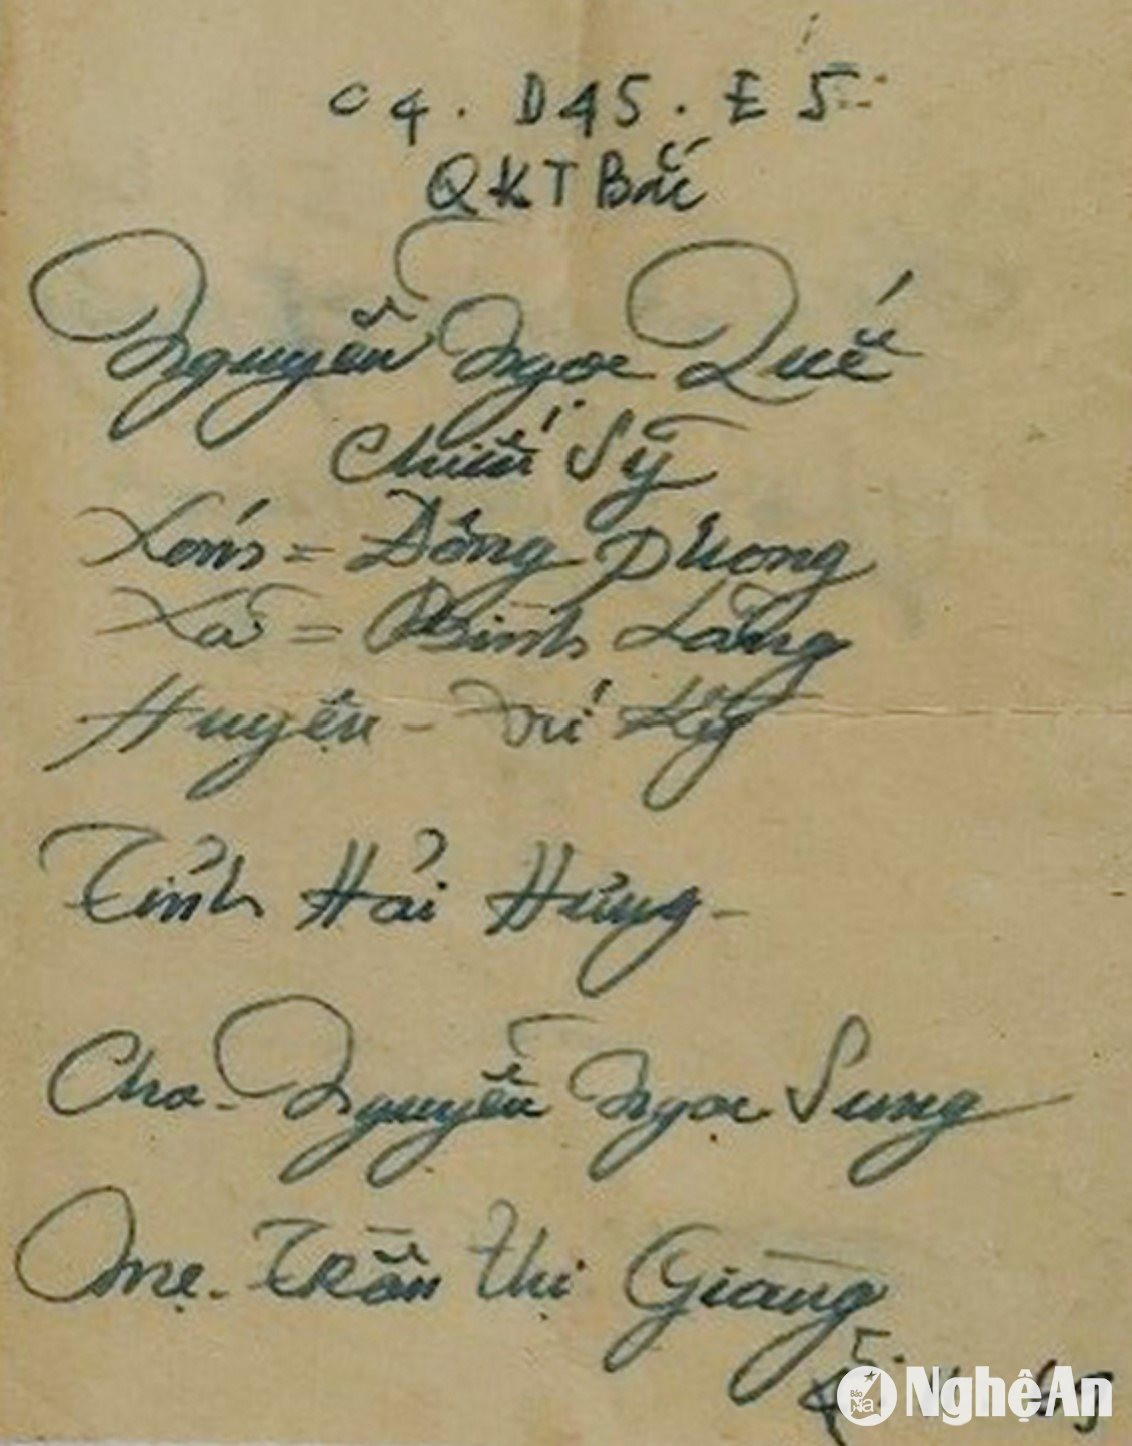 C4. D45. E5
QKT Bắc
Nguyễn Ngọc Quế
Chiến Sỹ
Xóm = Đông Phong
Xã = Bình Lãng
Huyện - Tứ Kỳ
Tỉnh Hải Hưng -
Cha - Nguyễn Ngọc Sung
Mẹ - Trần Thị Giàng
Báo Na NghệAn